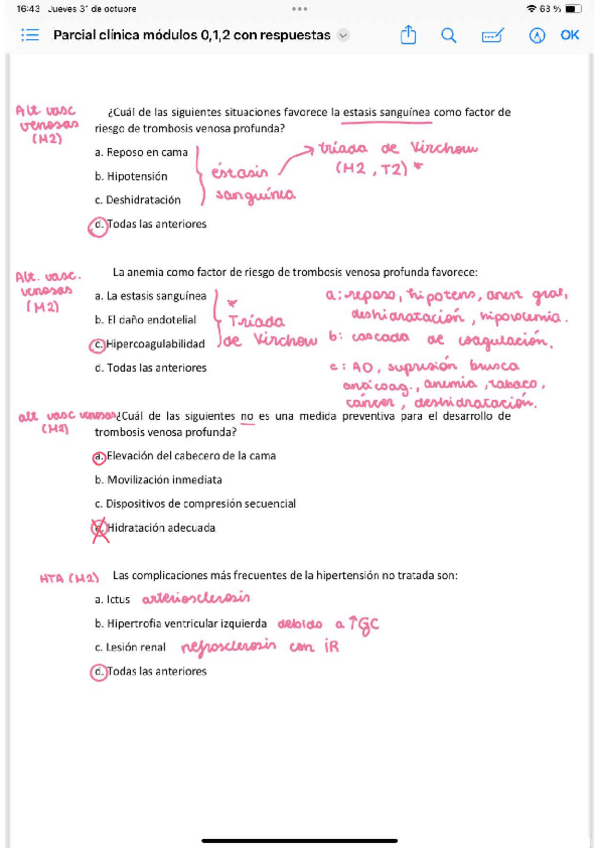 16:43 Jueves 31 de octubre
63 %
Parcial clínica módulos 0,1,2 con respuestas
OK
Alt. vasc venosas (M2)
¿Cuál de las siguientes situaciones favorece la estasis sanguínea como factor de
riesgo de trombosis venosa profunda?
a. Reposo en cama
b. Hipotensión
c. Deshidratación
d. Todas las anteriores
éstasis
sanguínea
tríada de Virchow
(M2, T2) *
Alt. vasc. venosas (M2)
La anemia como factor de riesgo de trombosis venosa profunda favorece:
a. La estasis sanguínea
b. El daño endotelial
c. Hipercoagulabilidad
d. Todas las anteriores
*
Tríada
de Virchow
a: reposo, hipotens, anest gral,
deshidratación, hipovolemia.
b: cascada de coagulación.
c: AO, supresión brusca
anticoag., anemia, tabaco,
cáncer, deshidratación.
alt vasc venosas (M2)
¿Cuál de las siguientes no es una medida preventiva para el desarrollo de
trombosis venosa profunda?
a. Elevación del cabecero de la cama
b. Movilización inmediata
c. Dispositivos de compresión secuencial
Hidratación adecuada
HTA (M2)
Las complicaciones más frecuentes de la hipertensión no tratada son:
a. Ictus arteriosclerosis
b. Hipertrofia ventricular izquierda debido a ↑GC
c. Lesión renal nefrosclerosis con iR
d. Todas las anteriores